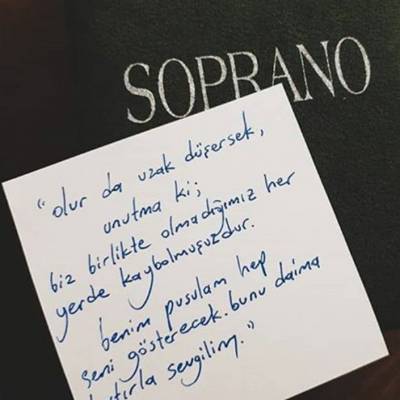 SOPRANO
"olur da uzak düşersek,
unutma ki;
biz birlikte olmadığımız her
yerde kaybolmuşuzdur.
benim pusulam hep
seni gösterecek. bunu daima
hatırla sevgilim."